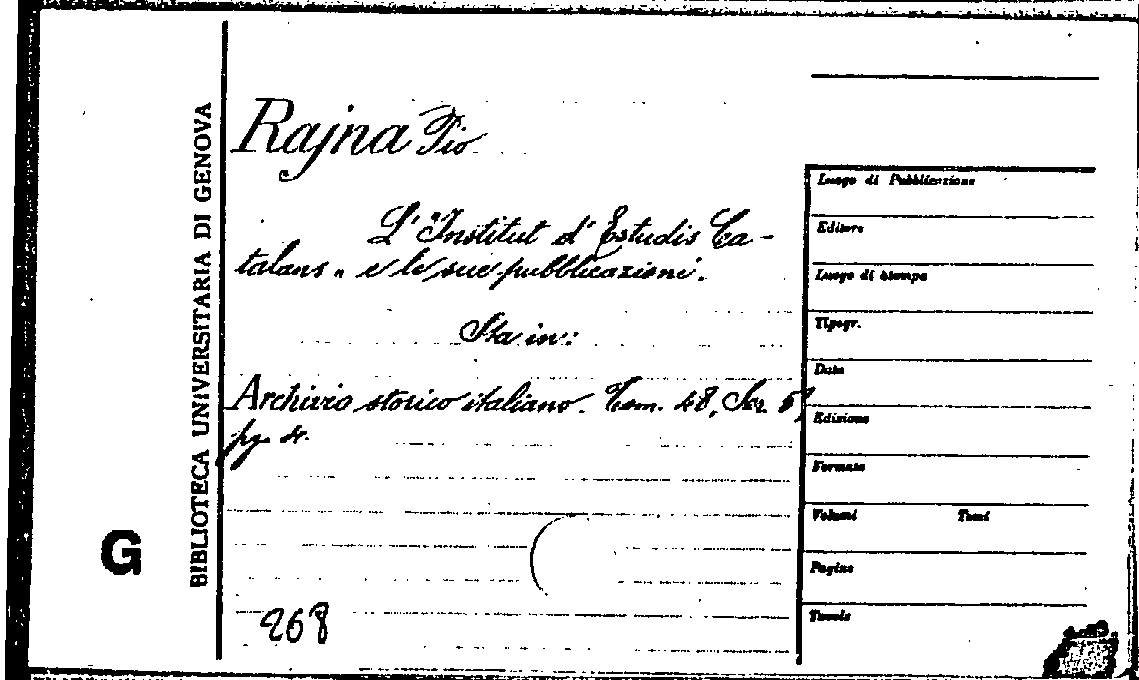 BIBLIOTECA UNIVERSITARIA DI GENOVA
G
Rajna Pio
L'"Institut d'Estudis Ca-
talans" e le sue pubblicazioni.
Sta in:
Archivio storico italiano. Tom. 48, Ser. 5ª
pg.
268
Luogo di Pubblicazione
Editore
Luogo di stampa
Tipogr.
Data
Edizione
Formato
Volumi Tomi
Pagine
Tavole